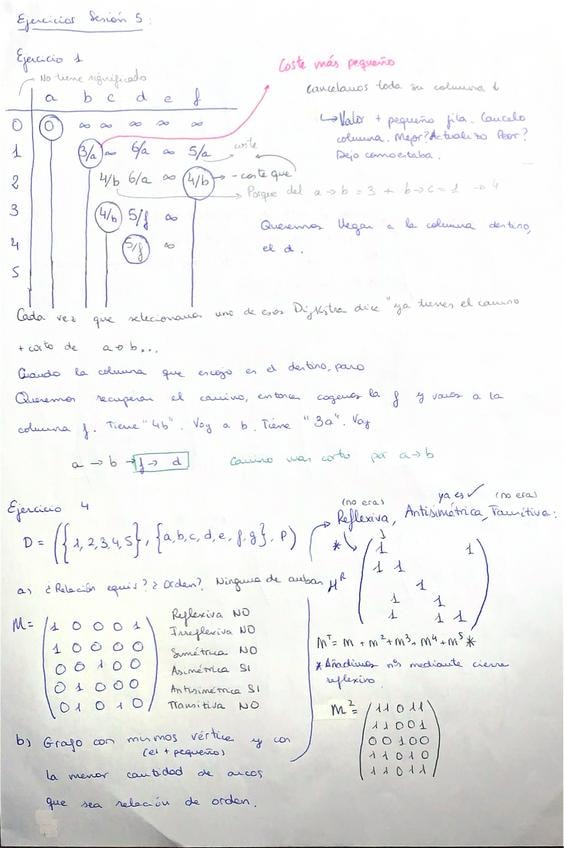 Ejercicios Sesión 5:
Ejercicio 1
No tiene significado
a b c d e f
0 0 ∞ ∞ ∞ ∞ ∞
1 3/a ∞ 6/a ∞ 5/a
2 4/b 6/a ∞ 4/b
3 4/b 5/f ∞
4 5/f ∞
5
Coste más pequeño
Cancelamos toda su columna
↳ Valor + pequeño fila. Cancelo
columna. Mejor? Actualizo Peor?
Dejo como estaba.
- coste que
Porque del a→b = 3 + b→c = 1 → 4
Queremos llegar a la columna destino,
el d.
Cada vez que seleccionamos uno de esos Dijkstra dice "ya tienes el camino
+ corto de a→b...
Cuando la columna que escojo es el destino, paro
Queremos recuperar el camino, entonces cogemos la f y vamos a la
columna f. Tiene "4b". Voy a b. Tiene "3a". Voy
a → b → f → d camino mas corto por a→b
Ejercicio 4
D = ({1,2,3,4,5}, {a,b,c,d,e,f,g}, P)
a) ¿Relación equiv? ¿Orden? Ninguna de ambas
M=
1 0 0 0 1
1 0 0 0 0
0 0 1 0 0
0 1 0 0 0
0 1 0 1 0
Reflexiva NO
Irreflexiva NO
Simétrica NO
Asimétrica SI
Antisimétrica SI
Transitiva NO
b) Grafo con mismos vértice y con
(el + pequeño)
la menor cantidad de arcos
que sea relación de orden.
(no era) ya es ✓ (no era)
Reflexiva, Antisimétrica, Transitiva:
* M^R
1 1
1 1
1
1 1
1 1
M^T = M + M² + M³ + M⁴ + M⁵ *
* Añadimos nºs mediante cierre
reflexivo
M² =
1 1 0 1 1
1 1 0 0 1
0 0 1 0 0
1 1 0 1 0
1 1 0 1 1